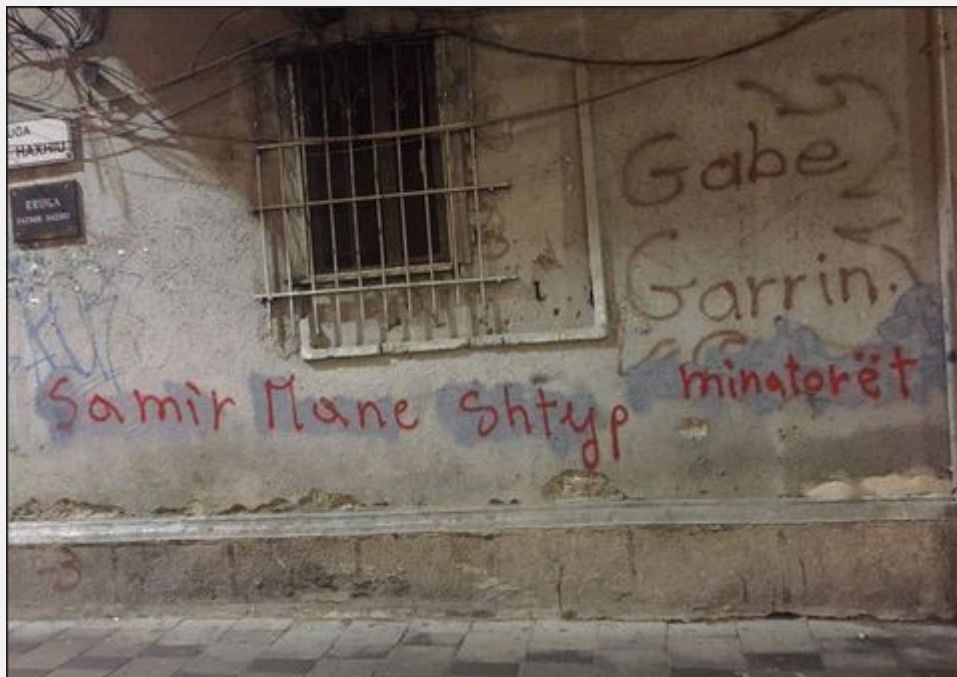 UGA
HAXHIU
RRUGA
Gabe
Garrin.
Samir Mane Shtyp minatorët